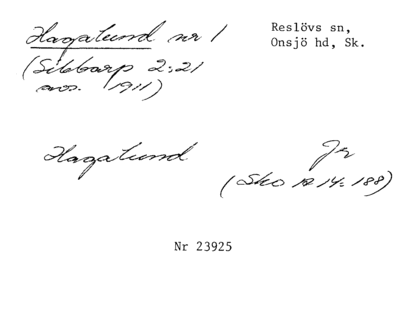 Hagalund nr 1
Reslövs sn,
Onsjö hd, Sk.
(Sibbarp 2:21
avs. 1911)
Hagalund Jr
(Sko 12 14: 188)
Nr 23925